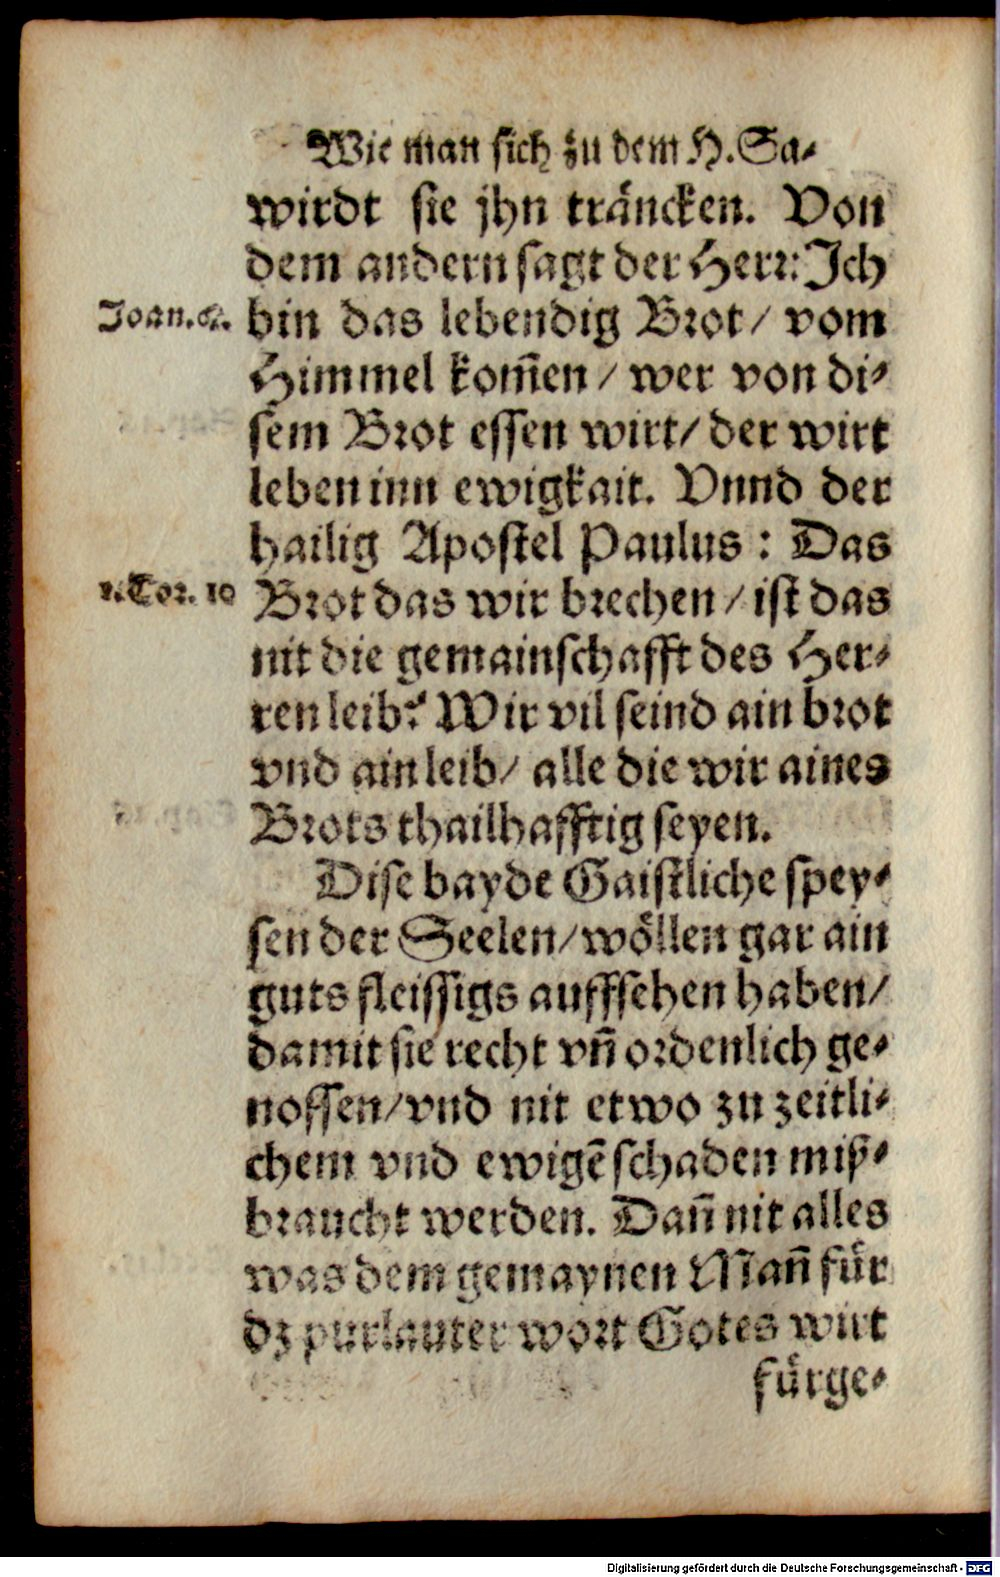 Wie man sich zu dem H. Sa-
wirdt sie jhn träncken. Von
dem andern sagt der Herr: Ich
Joan. 6. bin das lebendig Brot / vom
Himmel kom̄en / wer von di-
sem Brot essen wirt / der wirt
leben inn ewigkait. Vnnd der
hailig Apostel Paulus : Das
1. Cor. 10 Brot das wir brechen / ist das
nit die gemainschafft des Her-
ren leib? Wir vil seind ain brot
vnd ain leib / alle die wir aines
Brots thailhafftig seyen.
Dise bayde Gaistliche spey-
sen der Seelen / wöllen gar ain
guts fleissigs auffsehen haben /
damit sie recht vn̄ ordenlich ge-
nossen / vnd nit etwo zu zeitli-
chem vnd ewigē schaden miß-
braucht werden. Dan̄ nit alles
was dem gemaynen Man̄ für
dz purlauter wort Gotes wirt
fürge-
Digitalisierung gefördert durch die Deutsche Forschungsgemeinschaft - DFG